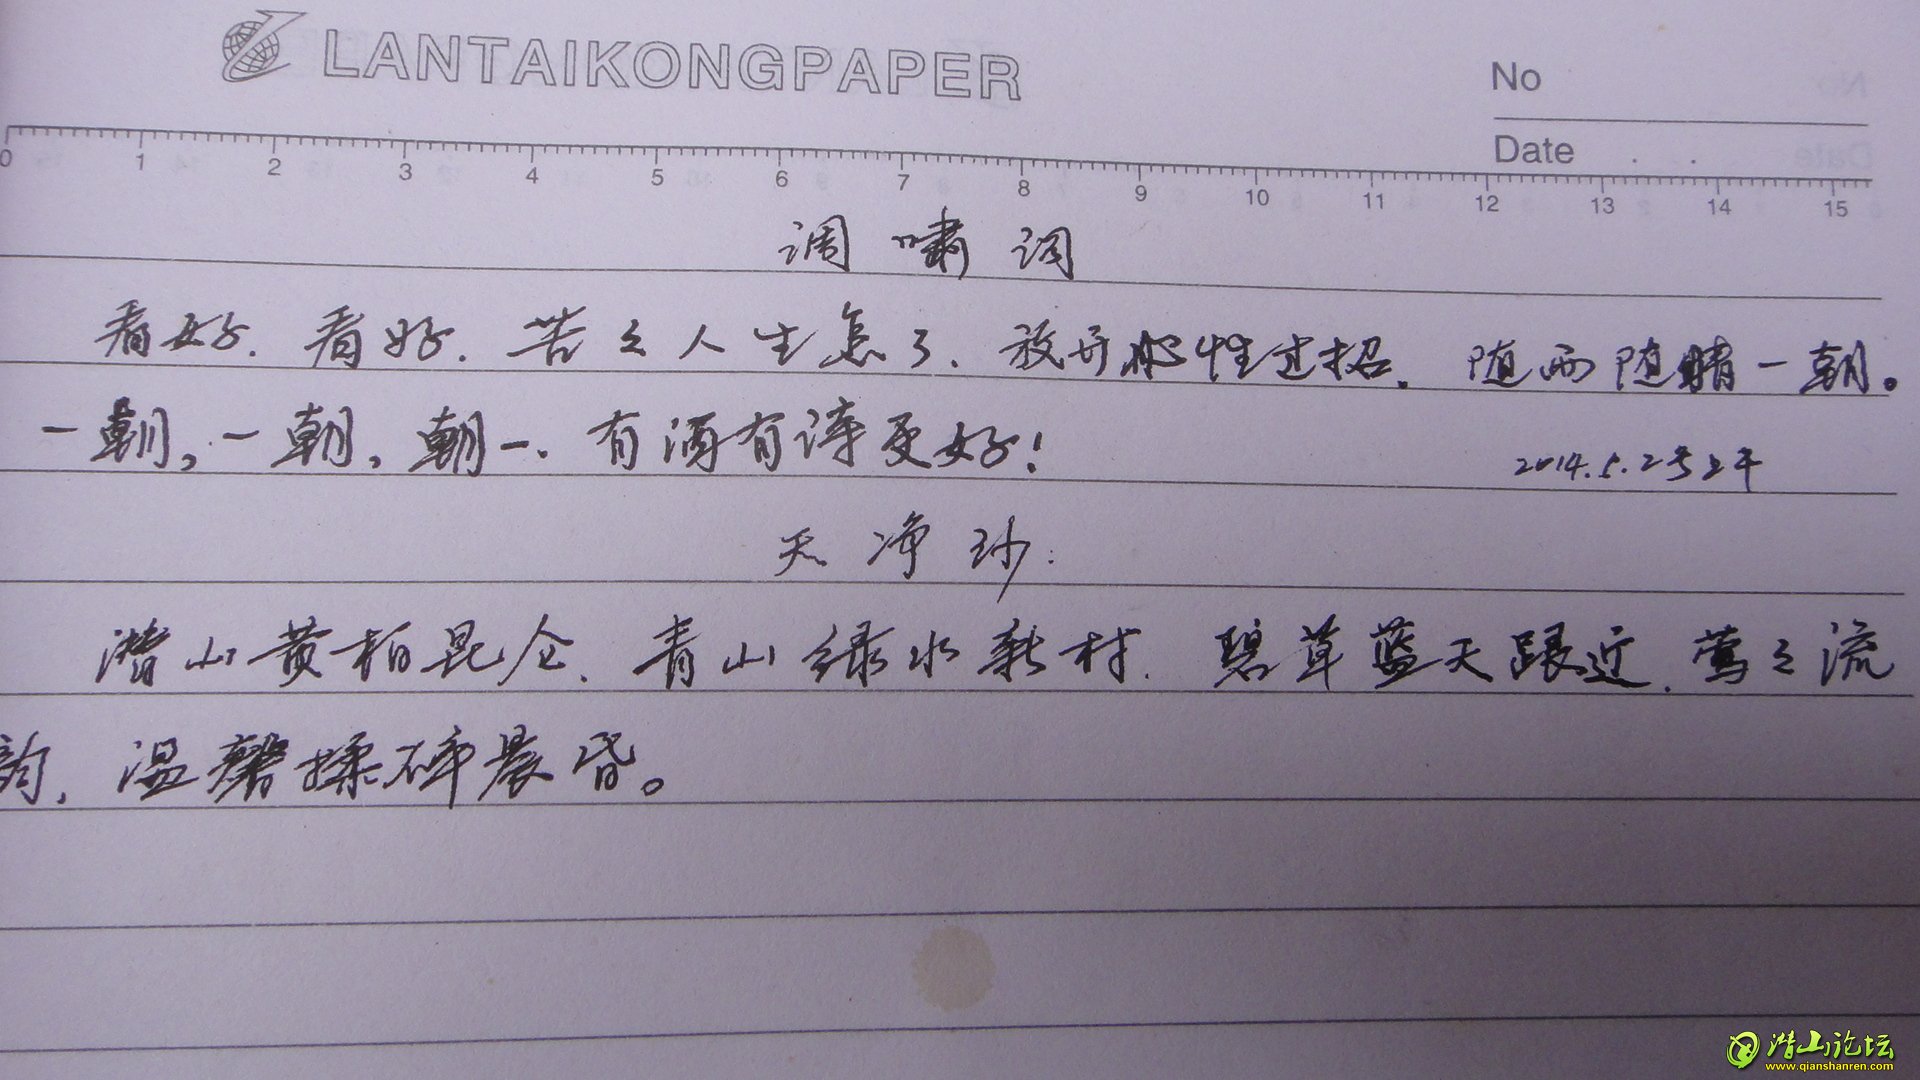 LANTAIKONGPAPER
No
Date . .
0 1 2 3 4 5 6 7 8 9 10 11 12 13 14 15
调啸词
看好.看好.苦々人生怎了.放开心性过招.随雨随晴一朝。
一朝,一朝,朝一.有酒有诗更好!
2014.5.2号上午
天净沙:
潜山黄柏昆仑.青山绿水新村.碧草蓝天跟近.莺々流
韵,温馨揉碎晨昏。
潜山论坛
www.qianshanren.com